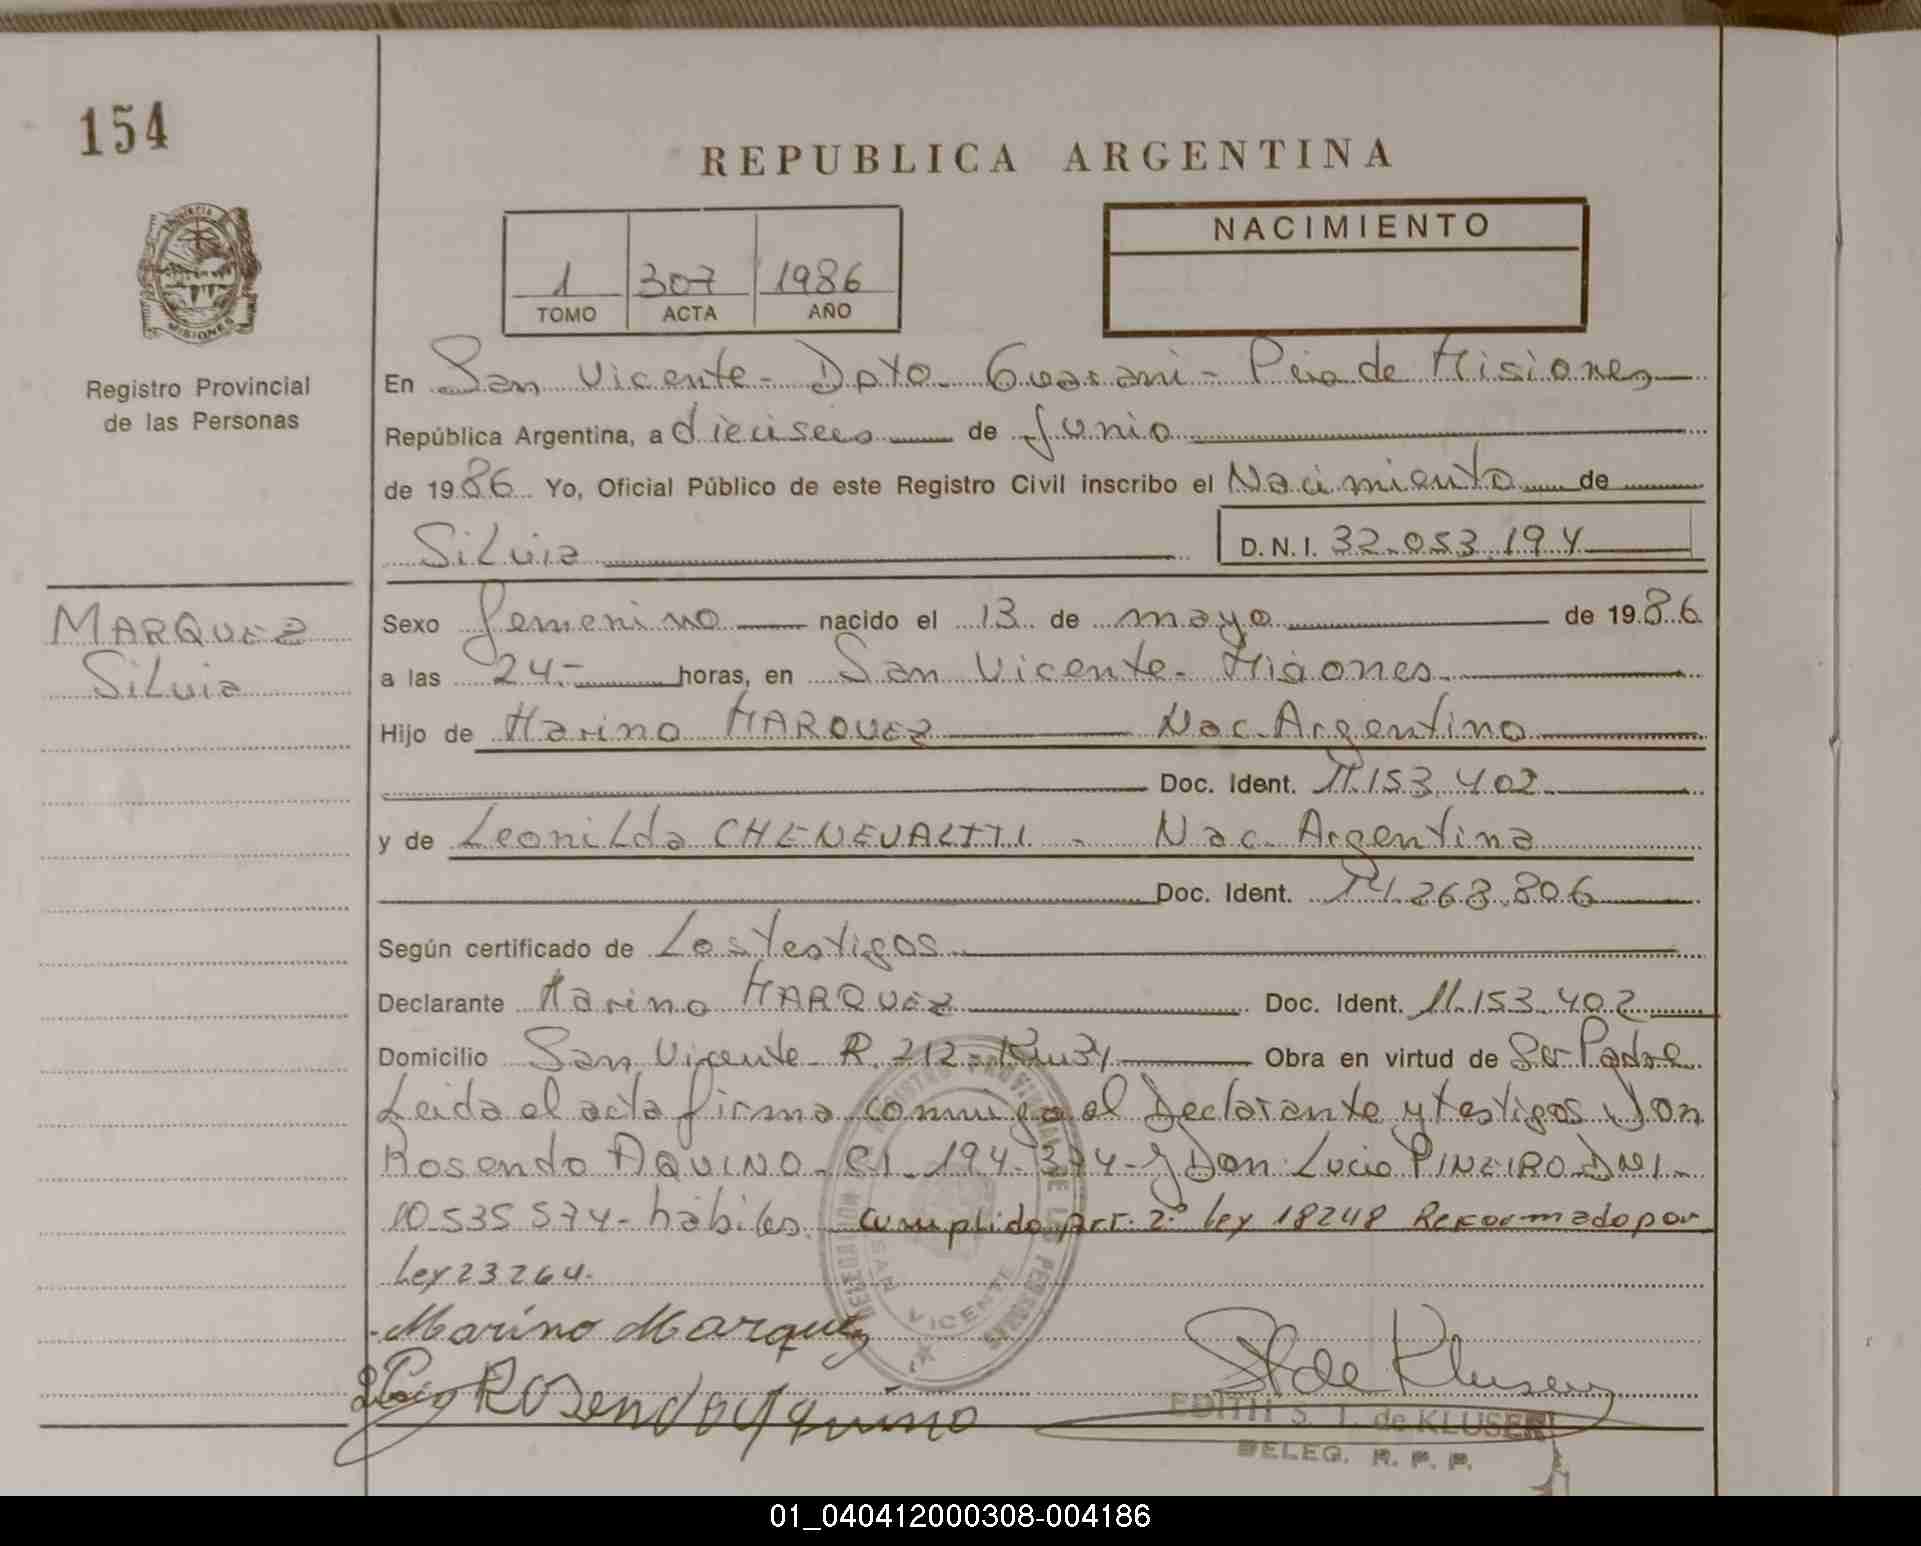 154
REPUBLICA ARGENTINA
NACIMIENTO
1 307 1986
TOMO ACTA AÑO
PROVINCIA MISIONES
Registro Provincial
de las Personas
En San Vicente - Dpto. Guarani - Pcia de Misiones
República Argentina, a dieciseis de Junio
de 1986 Yo, Oficial Público de este Registro Civil inscribo el Nacimiento de
Silvia D.N.I. 32.053.194
MARQUEZ
Silvia
Sexo femenino nacido el 13 de mayo de 1986
a las 24.- horas, en San Vicente - Misiones.
Hijo de Marino MARQUEZ Nac. Argentino
Doc. Ident. 11.153.402
y de Leonilda CHENEVALTTI - Nac. Argentina
Doc. Ident. 14.268.806
Según certificado de Los testigos
Declarante Marino MARQUEZ Doc. Ident. 11.153.402
Domicilio San Vicente - R. 212 - Obra en virtud de Ser Padre
Leida el acta firma conmigo el Declarante y testigos Don
Rosendo AQUINO - CI - 194.374 - y Don Lucio PINEIRO DNI -
10.535.574 - habiles. Cumplido Art. 2º ley 18248 Reformado por
Ley 23264.
Marino Marquez
Rosendo Aquino
SAN VICENTE
EDITH S. T. de KLUSEN
DELEG. R. P. P.
01_040412000308-004186